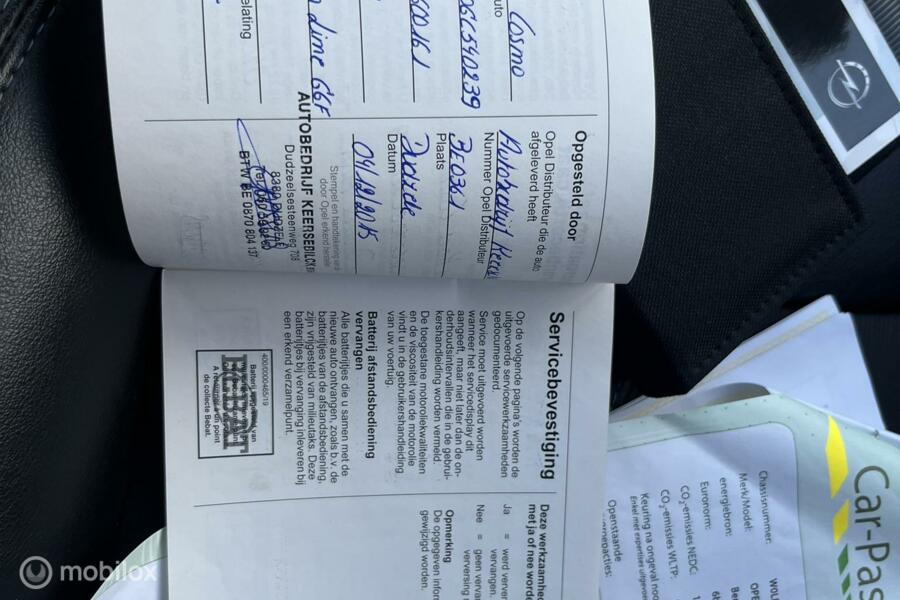 Cosmo
uto
06C540239
50016.1
elating
Opgesteld door
Opel Distributeur die de auto
afgeleverd heeft
Autobedrijf
Nummer Opel Distributeur
BE0361
Plaats
Dudzele
Datum
04/12/2015
Stempel en handtekening van
door Opel erkend herstel
AUTOBEDRIJF KEERSEBILCK
Dudzeelsesteenweg 708
8380 DUDZELE
BTW BE 0870 804 137
Servicebevestiging
Op de volgende pagina's worden de
uitgevoerde servicewerkzaamheden
gedocumenteerd.
Service moet uitgevoerd worden
wanneer het servicedisplay dit
aangeeft, maar niet later dan de on-
derhoudsintervallen die in de gebrui-
kershandleiding worden vermeld.
De toegestane motoroliekwaliteiten
en de viscositeit van de motorolie
vindt u in de gebruikershandleiding
van uw voertuig.
Batterij afstandsbediening
vervangen
Alle batterijtjes die u samen met de
nieuwe auto ontvangen, zoals b.v. de
batterijtjes van de afstandsbediening,
zijn vrijgesteld van milieutaks. Deze
batterijtjes bij vervanging inleveren bij
een erkend verzamelpunt.
400/0000465/19
A
point
de collecte Bebat.
Deze werkzaamhed
met ja of nee worde
Ja = werd verver
vervangen.
Nee = geen vervan
verversing
Opmerking
De opgegeven inform
gewijzigd worden.
Car-Pas
Chassisnummer:
Merk/Model:
energiebron:
Euronorm:
CO₂-emissies NEDC:
CO₂-emissies WLTP:
Keuring na ongeval nood
Enkel met expertises uitgevoer
Openstaande
WOL
OPE
Be
6b
mobilox